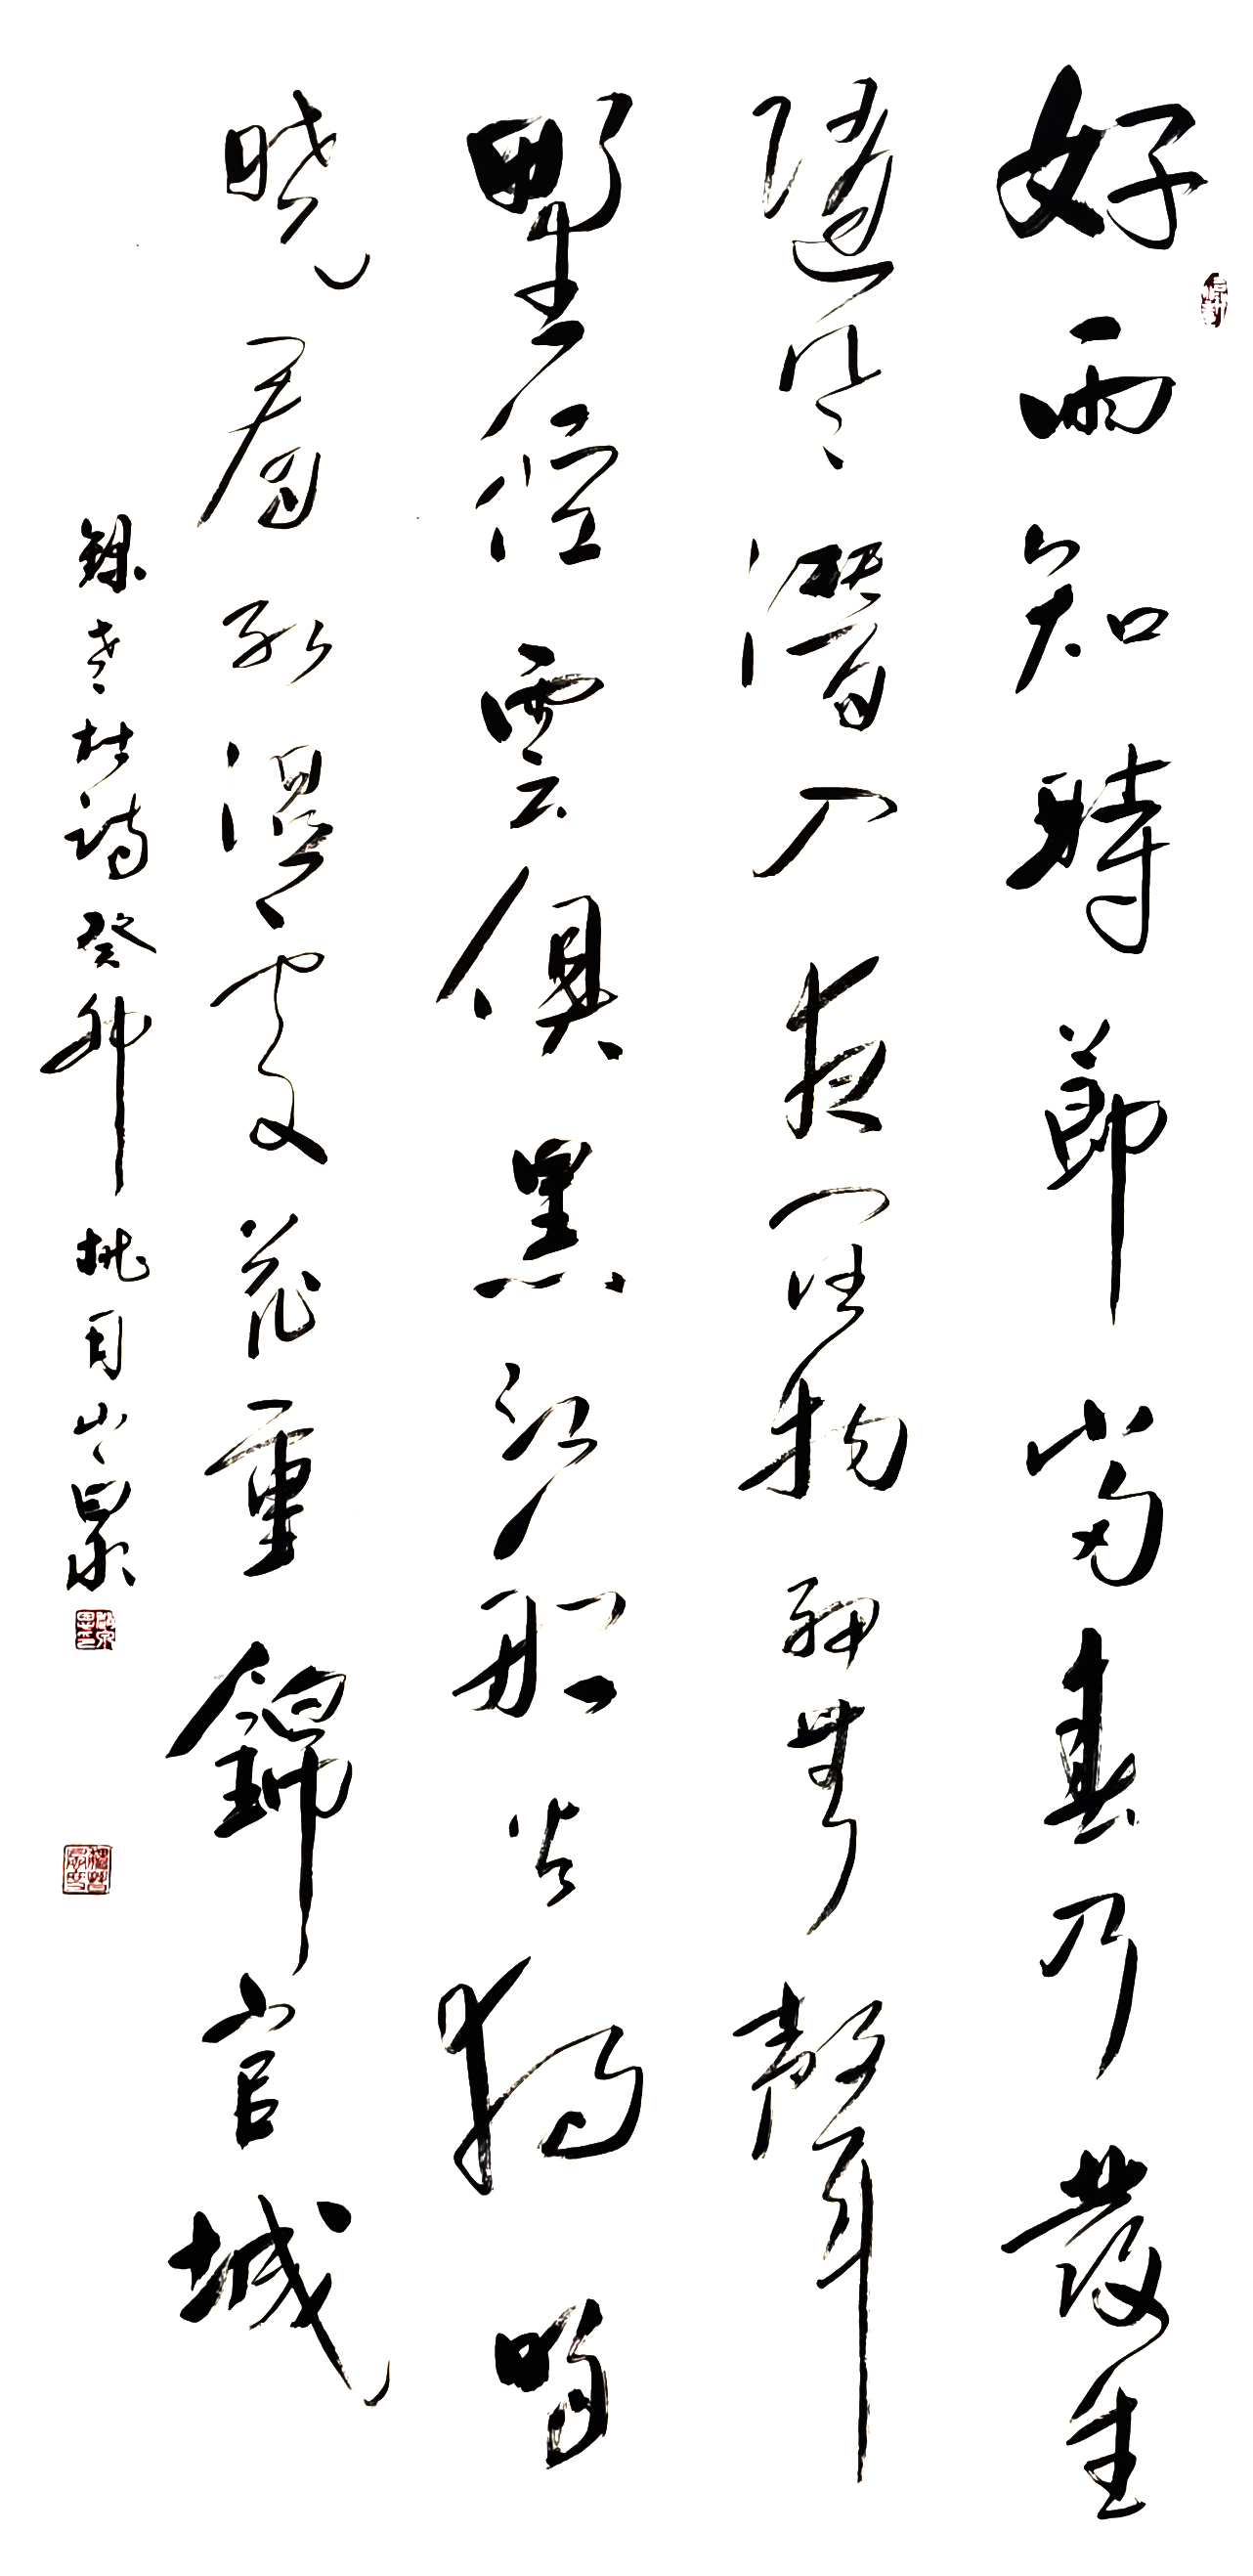 好雨知時節當春乃發生
隨風潛入夜潤物細無聲
野徑雲俱黑江船火獨明
曉看紅濕處花重錦官城
錄老杜詩癸卯桃月山泉